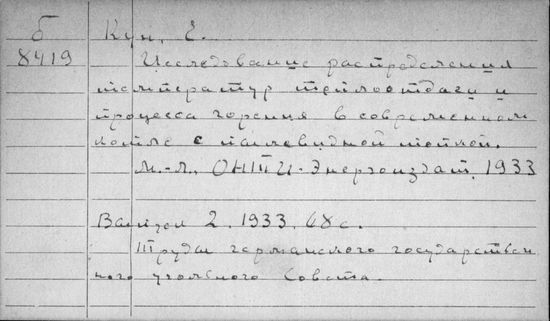 б
8419
Кун, Е.
Исследование распределения
температур теплоотдачи и
процесса горения в современном
котле с пылевидной топкой.
М.-Л., ОНТИ-Энергоиздат, 1933
Выпуск 2. 1933. 68 с.
Труды германского государствен
ного угольного Совета.